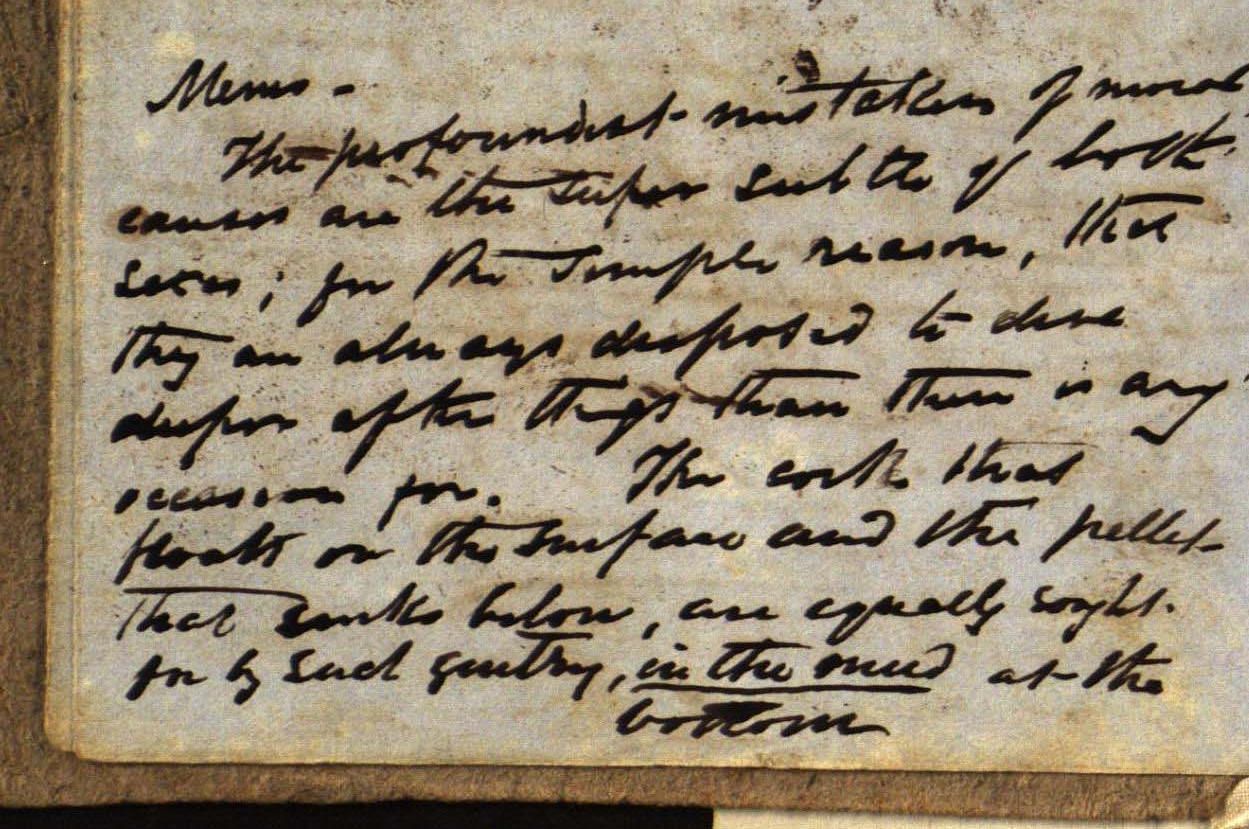 Memo -
The profoundest mistakers of moral
causes are the super subtle of both
sexes; for the simple reason, that
they are always disposed to dive
deeper after things than there is any
occasion for. The cork that
floats on the surface and the pellet
that sinks below, are equally sought
for by such gentry, in the mud at the
bottom